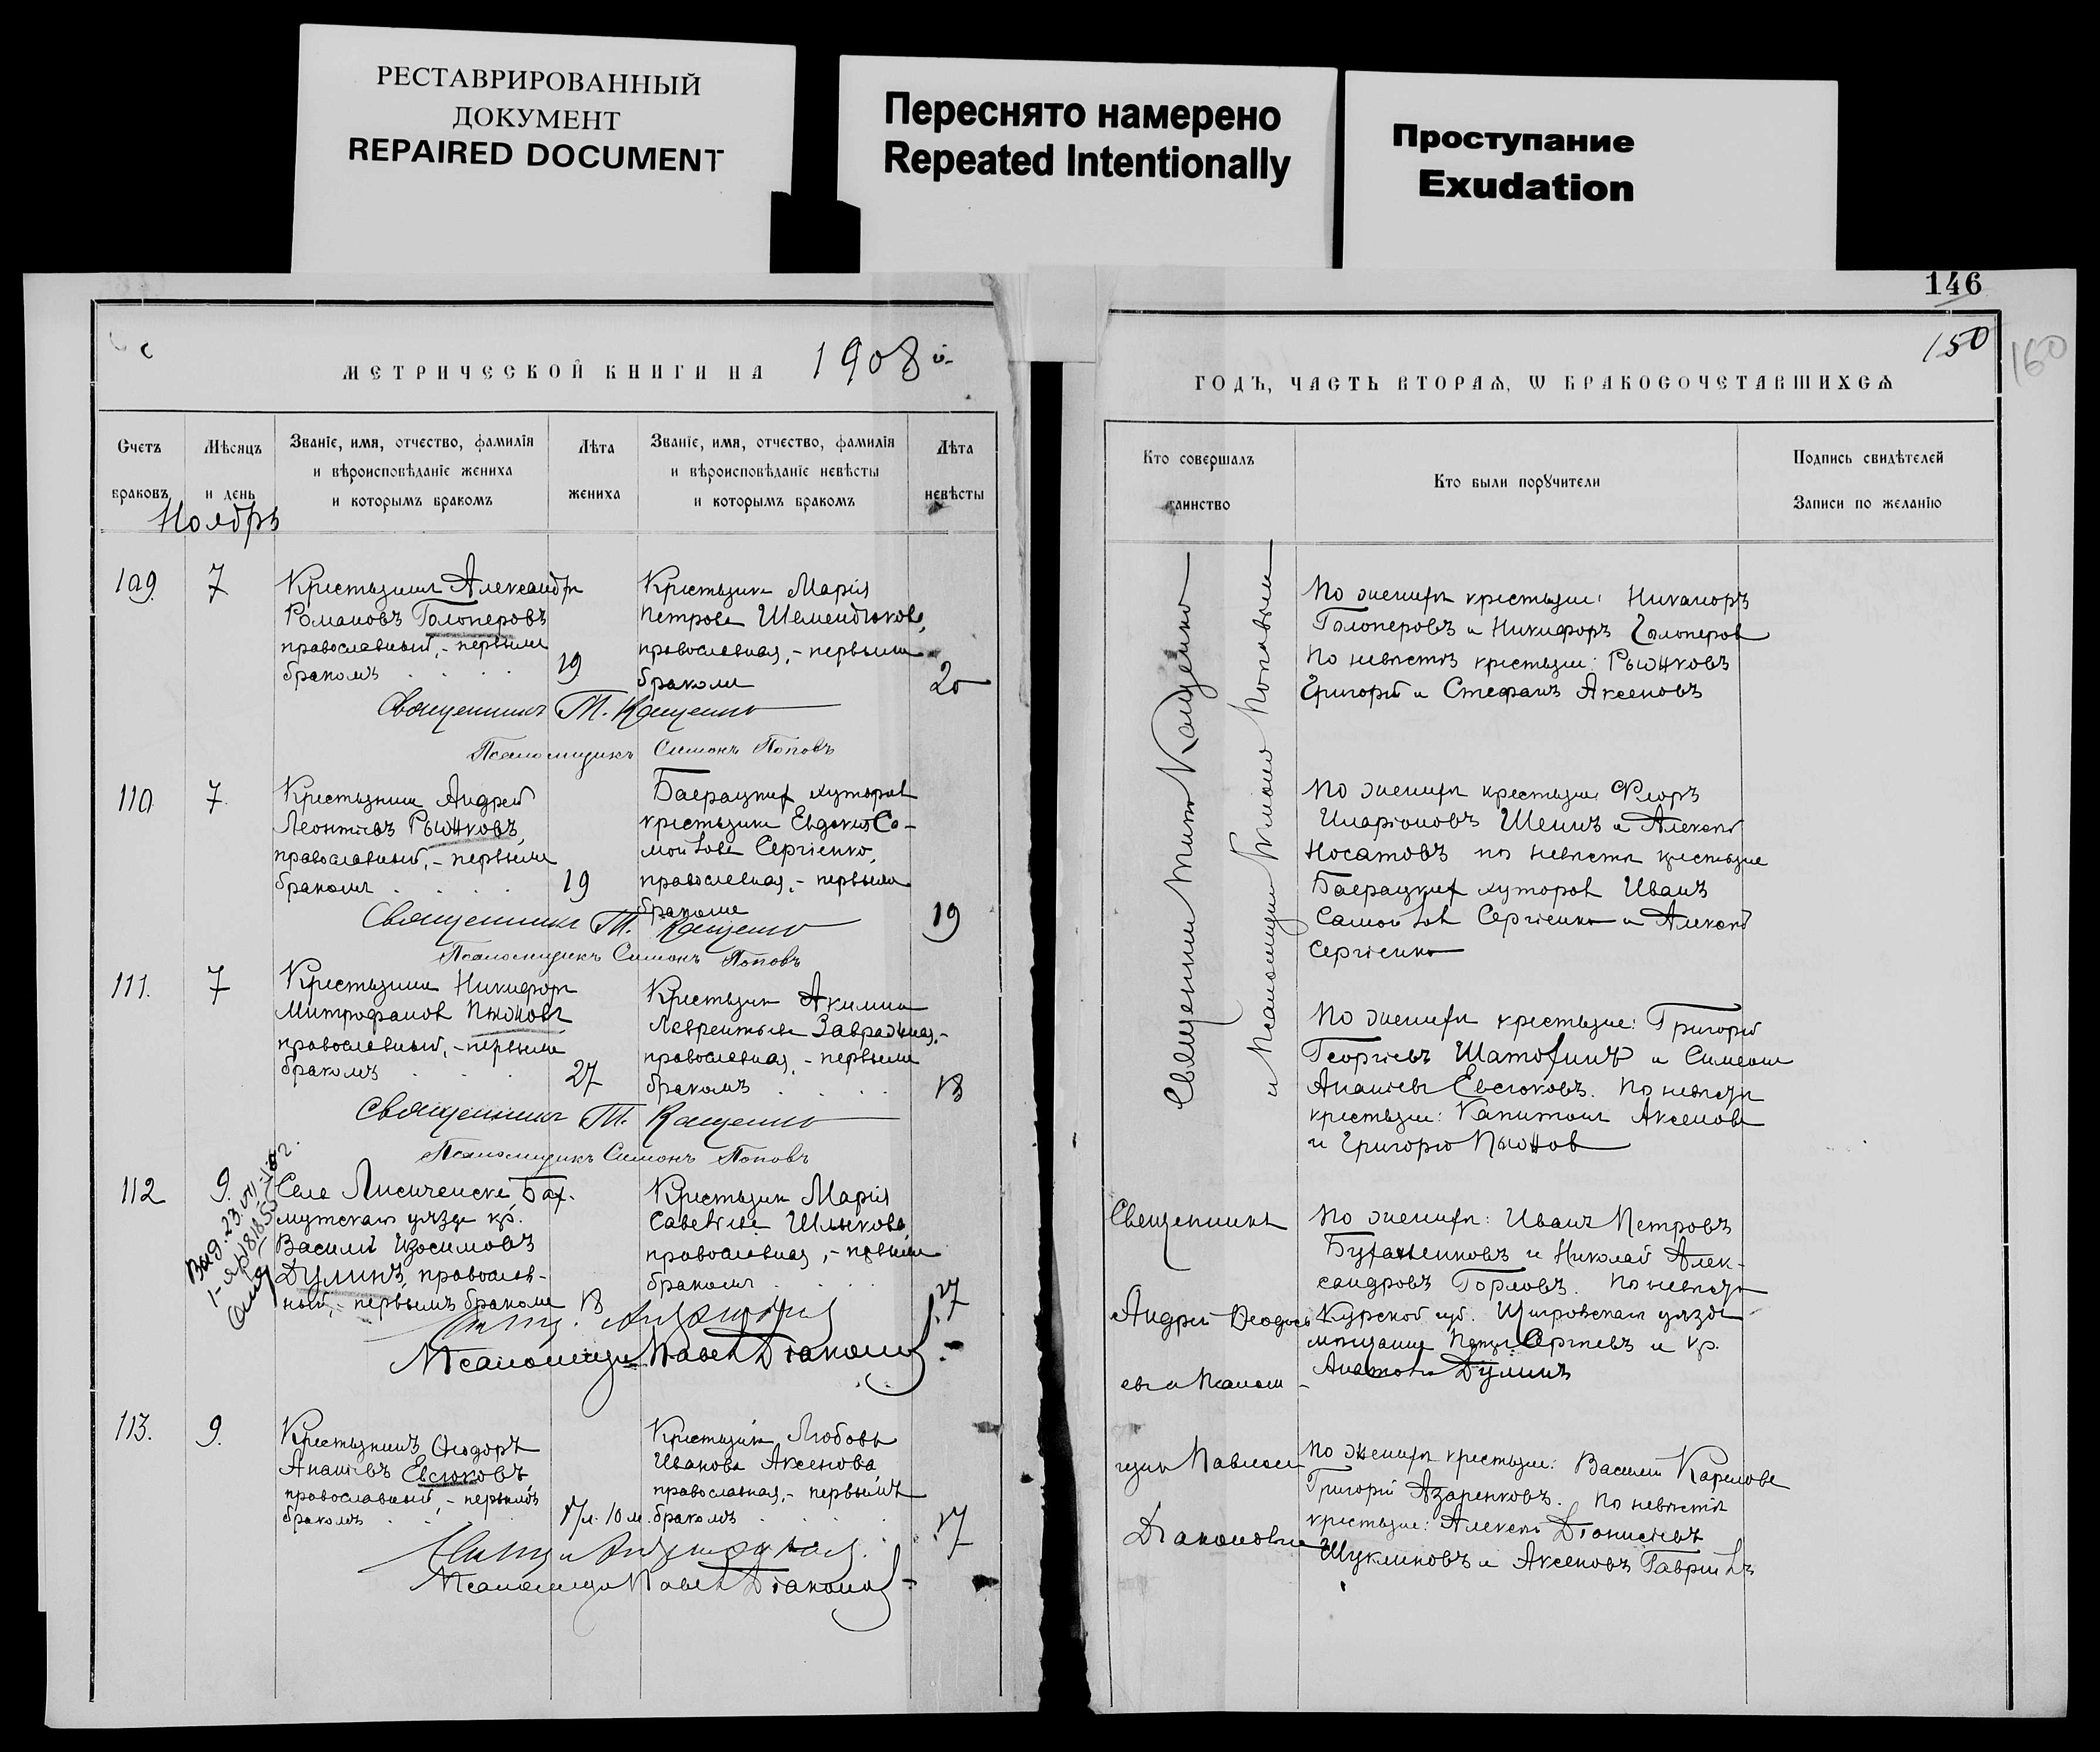 РЕСТАВРИРОВАННЫЙ
ДОКУМЕНТ
REPAIRED DOCUMENT
Переснято намерено
Repeated Intentionally
Проступание
Exudation
146
150
160
МЕТРИЧЕСКОЙ КНИГИ НА 1908 й
ГОДЪ, ЧАСТЬ ВТОРАѦ, Ѡ БРАКОСОЧЕТАВШИХСѦ
Счетъ
браковъ
Мѣсяцъ
и день
Званіе, имя, отчество, фамилія
и вѣроисповѣданіе жениха
и которымъ бракомъ
Лѣта
жениха
Званіе, имя, отчество, фамилія
и вѣроисповѣданіе невѣсты
и которымъ бракомъ
Лѣта
невѣсты
Кто совершалъ
таинство
Кто были порꙋчители
Подпись свидѣтелей
Записи по желанію
Ноябрь
109.
7
Крестьянинъ Александръ
Романовъ Голоперовъ
православный, - первымъ
бракомъ
19
Крестьянка Марія
Петрова Шемендюкова,
православная, - первымъ
бракомъ
20
Священникъ Т. Кащенко
Псаломщикъ Симонъ Поповъ
По женихѣ крестьяне: Никаноръ
Голоперовъ и Никифоръ Голоперовъ
По невѣстѣ крестьяне: Рыжковъ
Григорій и Стефанъ Аксеновъ
Священникъ Титъ Кащенко
и Псаломщикъ Симонъ Поповъ
110
7.
Крестьянинъ Андрей
Леонтіевъ Рыжковъ,
православный, - первымъ
бракомъ
19
Баерацкихъ хуторовъ
крестьянка Евдокія Са-
мойлова Сергіенко,
православная, - первымъ
бракомъ
19
Священникъ Т. Кащенко
Псаломщикъ Симонъ Поповъ
По женихѣ крестьяне Флоръ
Иларіоновъ Шеинъ и Алексѣй
Носатовъ по невѣстѣ крестьяне
Баерацкихъ хуторовъ Иванъ
Самойловъ Сергіенко и Алексѣй
Сергіенко
111.
7
Крестьянинъ Никифоръ
Митрофановъ Пыжовъ
православный, - первымъ
бракомъ
27
Крестьянка Акилина
Лаврентьева Завражная, -
православная, - первымъ
бракомъ
18
Священникъ Т. Кащенко
Псаломщикъ Симонъ Поповъ
По женихѣ крестьяне: Григорій
Георгіевъ Шатохинъ и Симеонъ
Ананіевъ Евсюковъ. По невѣстѣ
крестьяне: Капитонъ Аксеновъ
и Григорій Пыжовъ
112
9.
Села Лисиченска Бах-
мутскаго уѣзда кр.
Василій Изосимовъ
Дулинъ, православ-
ный, - первымъ бракомъ
18
Крестьянка Марія
Савельева Шлыкова
православная, - первымъ
бракомъ
17
Псаломщикъ Павелъ Діаконовъ
Священникъ
Андрей Ѳеодось
евъ и Псалом-
щикъ Павелъ
Діаконовъ
По женихѣ: Иванъ Петровъ
и Николай Алек-
сандровъ Горловъ. По невѣстѣ
Курской губ. Щигровскаго уѣзда
мѣщанинъ Петръ Сергѣевъ и кр.
Дулинъ
113.
9.
Крестьянинъ Ѳеодоръ
Ананіевъ Евсюковъ
православный, - первымъ
бракомъ
17л. 10м.
Крестьянка Любовь
Иванова Аксенова,
православная, - первымъ
бракомъ
17
Псаломщикъ Павелъ Діаконовъ
По женихѣ крестьяне: Василій Карелова
Григорій Азаренковъ. По невѣстѣ
крестьяне: Алексѣй Діонисіевъ
Шуклиновъ и Аксеновъ Гавріилъ